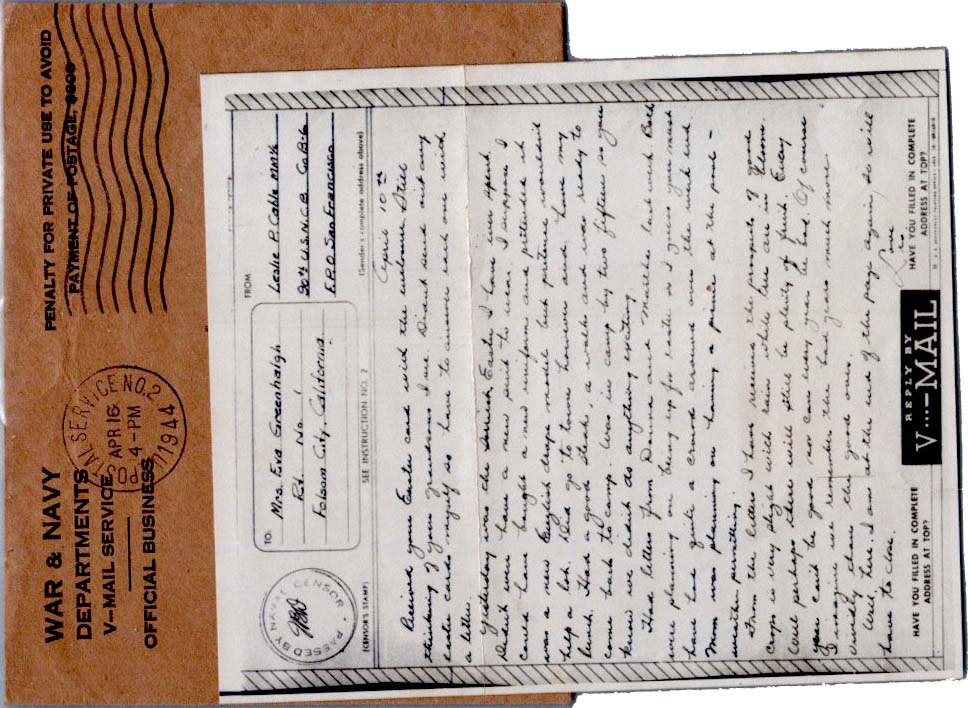 WAR & NAVY
DEPARTMENTS
V-MAIL SERVICE
OFFICIAL BUSINESS
PENALTY FOR PRIVATE USE TO AVOID
PAYMENT OF POSTAGE, $300
SERVICE NO. 2
APR 16
4-PM
1944
PASSED BY NAVAL CENSOR
(CENSOR'S STAMP)
TO:
Mrs. Eva Greenhalgh
Rt. No. 1
Folsom City, California
SEE INSTRUCTION NO. 2
FROM
Leslie P. Cable MM1/c
30th U.S.N.C.B. Co B-6
F.P.O. San Francisco
(Sender's complete address above)
April 10th
Received your Easter card with the welcome. Still
thinking of your grandsons I see. Didn't send out any
easter cards myself so have to answer each one with
a letter.
Yesterday was the Easter I have spent.
Didn't even have a new suit to wear. I suppose I
could have bought a new uniform and pretended it
was a new English drape model but pretense wouldn't
help a lot. Did go to town however and have my
lunch. Had a good steak, a walk and was ready to
come back to camp. Was in camp by two fifteen so you
know we didn't do anything exciting.
Had letters from Donna and Merle last week. Both
were planning on being up for easter so I guess you must
have had quite a crowd around over the week end.
Mom was planning on having a picnic at the pool -
weather permitting.
From the letters I have received the prospects of good
crops is very slight with rain while trees are in bloom.
Well perhaps there will still be plenty of fruit. Every
year can't be good nor can every year be bad. Of course
I imagine we remember the bad years much more
vividly than the good ones.
Well, here I am at the end of the page again, so will
have to close.
Love
Les
HAVE YOU FILLED IN COMPLETE
ADDRESS AT TOP?
REPLY BY
V···—MAIL
HAVE YOU FILLED IN COMPLETE
ADDRESS AT TOP?